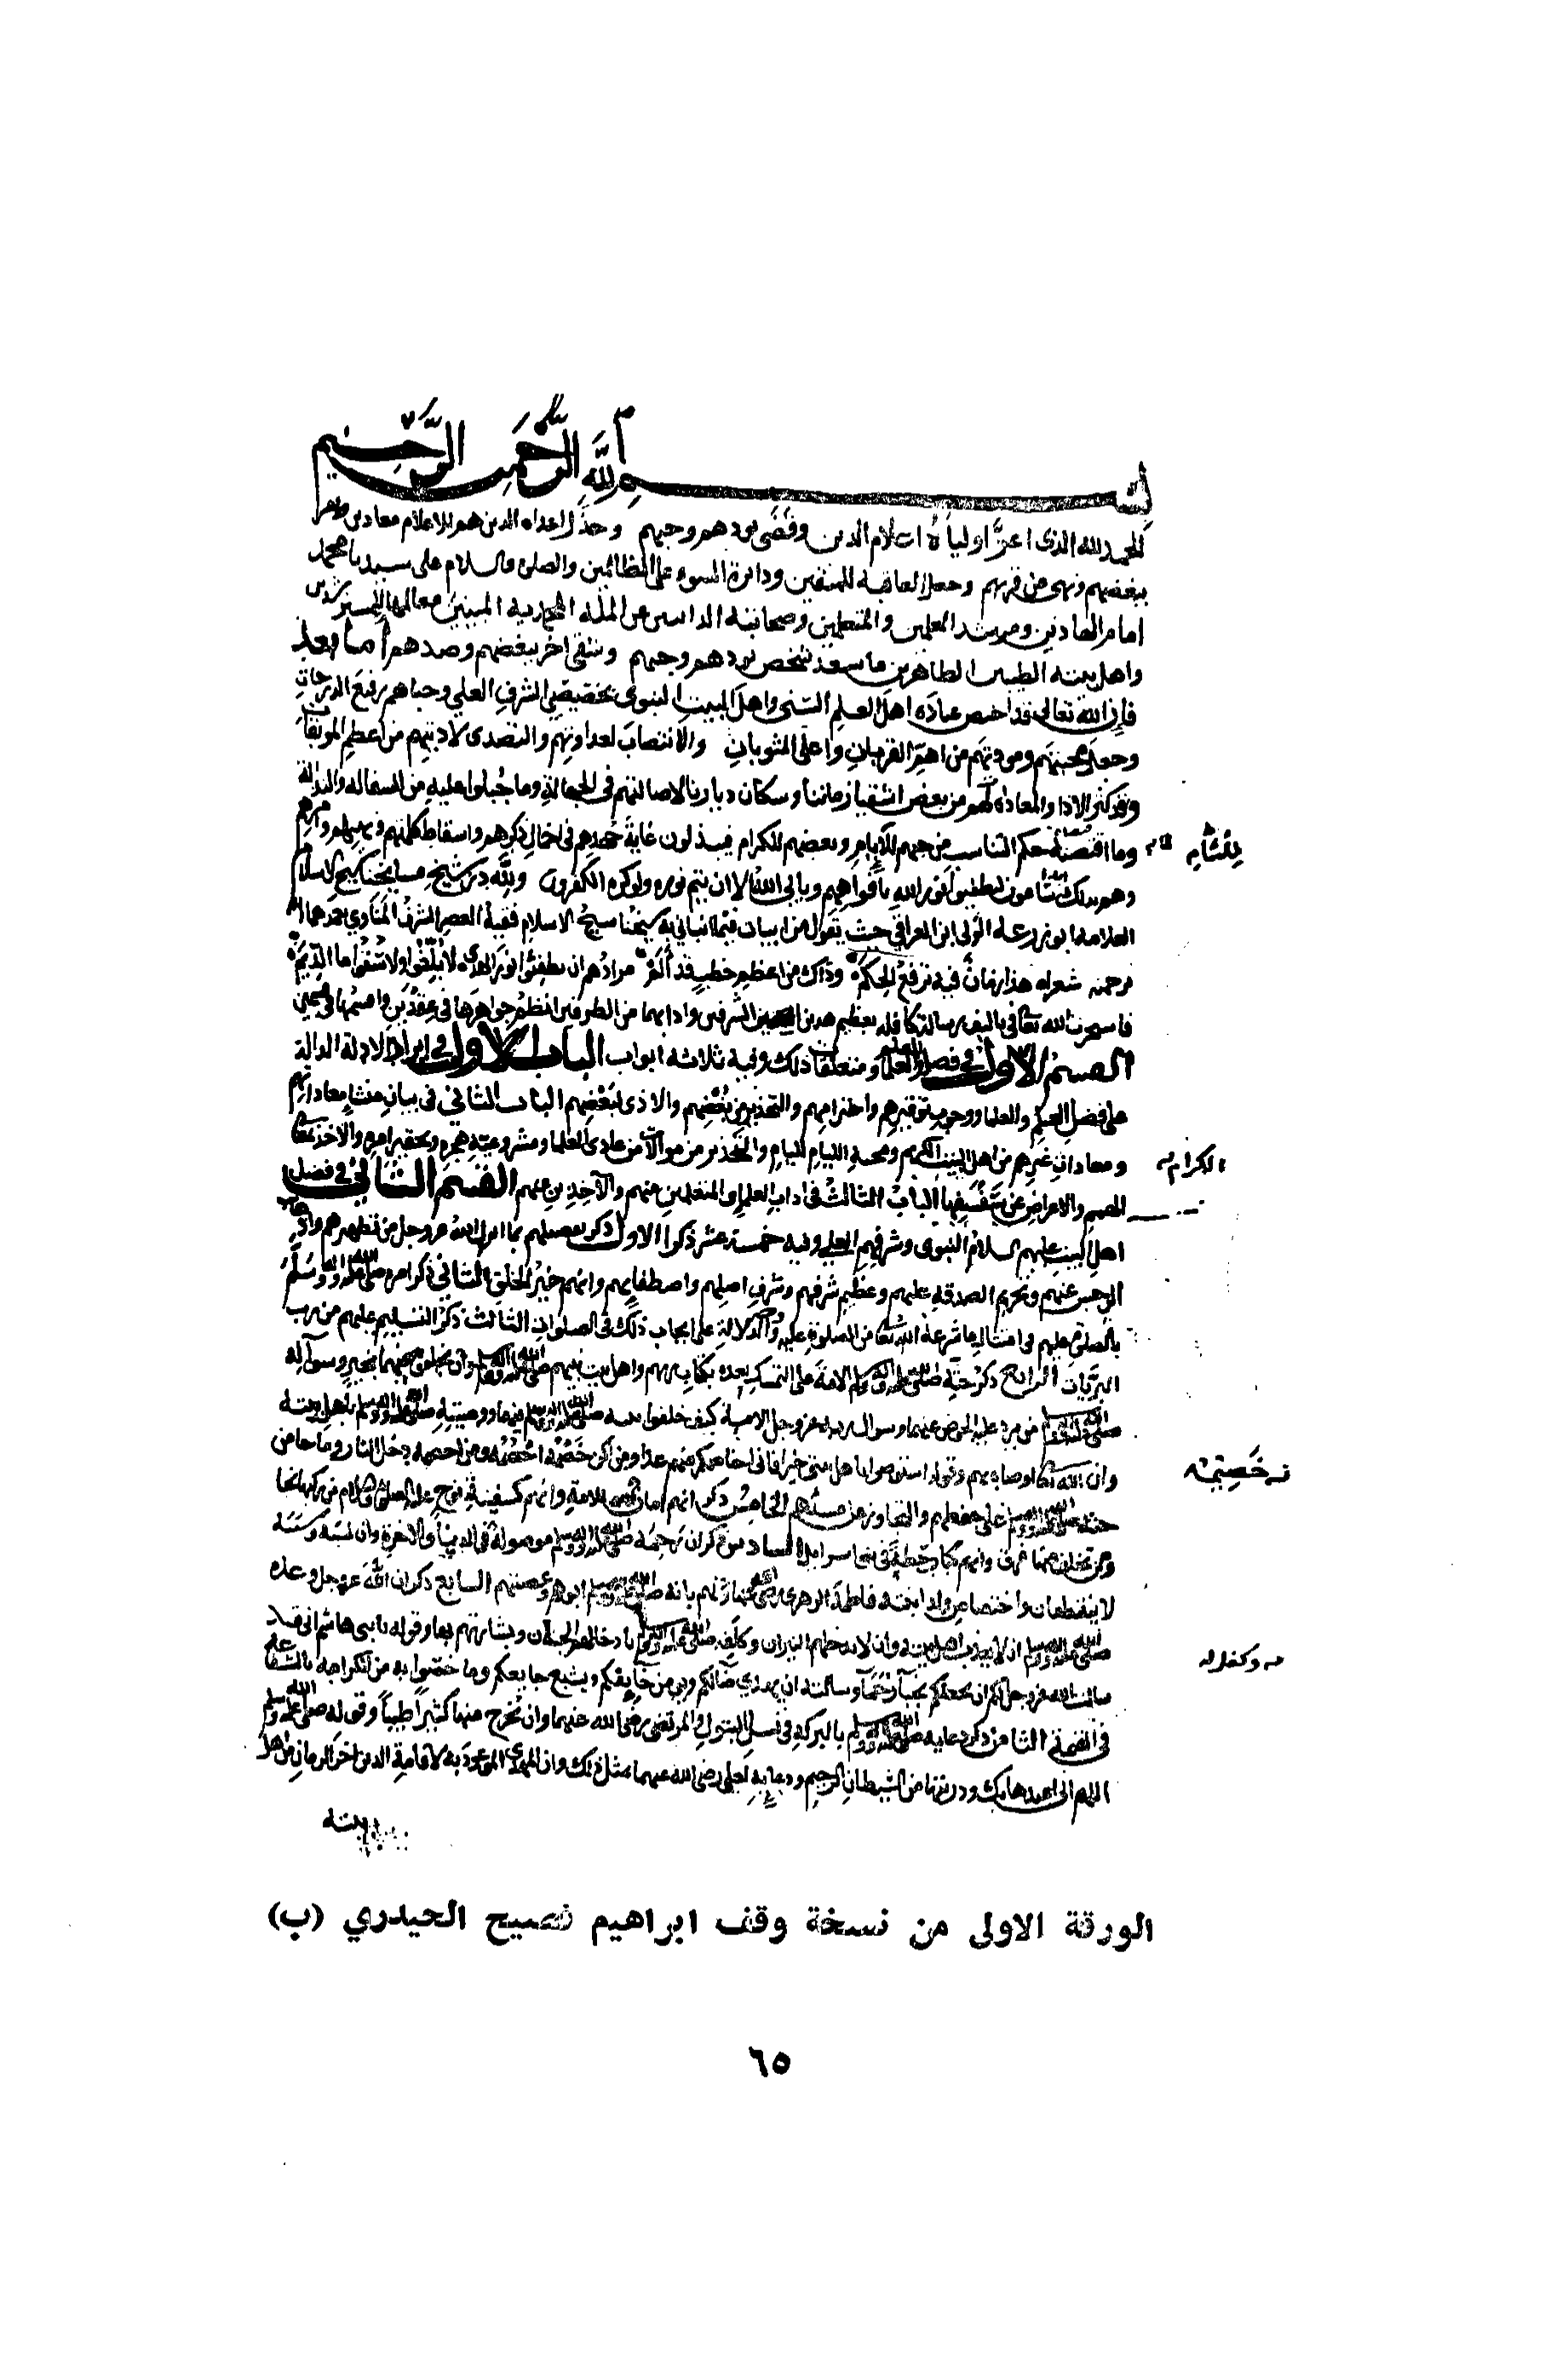 بسم الله الرحمن الرحيم
الحمد لله الذى اعزَّ اولياءَه اعلام الدين وقضى بودهم وحبهم وخذل اعداءه الذين هم للاعلام معادين وامر
ببغضهم ونهى عن قربهم وجعل العاقبة للمتقين ودائرة السوء على الظالمين والصلوة والسلام على سيدنا محمد
امام الهادين ومرشد العلمين والمتعلمين وصحابته الذابين عن الملة المحمدية المبينين معالمها للمسترشدين
واهل بيته الطيبين الطاهرين ما سعد شخص بودهم وحبهم وشقى اخر ببغضهم وصدهم أما بعد
فإن الله تعالى قد اختص عباده اهل العلم السَّنى واهل البيت النبوى بخصيصى الشرف العلي وحباهم رفيع الدرجات
وجعل محبتهم ومودتهم من اهمّ القربات واعلى المثوبات والانتصاب لعداوتهم والتصدى لاذيتهم من اعظم الموبقات
وقد كثر الاذا والمعاداة لهم من بعض اشقيا زماننا وسكان ديارنا لاصالتهم فى الجهالة وما جُبلوا عليه من السفالة والنذالة
وما اقتضته حكم التناسب من حبهم للئام وبغضهم للكرام فيبذلون غاية جهدهم فى اخمال ذكرهم واسقاط كلمتهم
للمشابه
وهم بذلك يشامون ليطفئوا نور الله بافواههم ويابى الله الا ان يتم نوره ولو كره الكفرون ولله در شيخ مشايخنا شيخ الاسلام
العلامة ابو زرعة الولى ابن العراقي حيث يقول من ابيات فيما انبانى به شيخنا شيخ الاسلام فقيه العصر الشرف المناوي تغمدهما الله
برحمته شعر له هذا زمان فيه ترفع الحكم وذاك من اعظم خطب قد ألم مرادهم ان يطفئوا نور الهدى لا بُلّغوا ولا شُفوا
فاستخرت الله تعالى فى تاليف رسالة كافلة بعظيم هذين الشرفين وادابهما من الطرفين انظم جواهرها فى عقدين واضمها فى قسمين
القسم الاول فى فضل العلم والعلما ومتعلقات ذلك وفيه ثلاثة ابواب الباب الاول فى ايراد الادلة الدالة
على فضل العلم والعلما ووجوب توقيرهم واحترامهم والتحذير من بُغضهم والاذى لبعضهم الباب الثانى فى بيان منشا معاداتهم
ومعادات غيرهم من اهل البيت الكريم ومحبة الليام لليام والتحذير من موالاة من عادى العلما ومشروعية هجره وتحقير امره والاخذ
الكرام
الباب الثالث فى اداب العلما والمتعلمين منهم والآخذين عنهم القسم الثانى فى فضل
اهل البيت عليهم السلام النبوى وشرفهم العلي وفيه خمسة عشر ذكرا الاول ذكر تفضيلهم بما انزل الله عز وجل من تطهيرهم واذهاب
الرجس عنهم وتحريم الصدقة عليهم وعظيم شرفهم وشرف اصلهم واصطفايهم وانهم خير الخلق الثانى ذكر امره صلى الله عليه وسلم
بالصلوة عليهم فى امتثال ما شرعه الله تعالى من الصلوة عليه والدلالة على ايجاب ذلك فى الصلوات الثالث ذكر التسليم عليهم من رب
البريات الرابع ذكر حثه صلى الله عليه وسلم الامة على التمسك بعده بكتاب ربهم واهل بيت نبيهم صلى الله عليه وسلم وان يخلفوه فيهما بخير وسواله
صلى الله عليه وسلم من يرد عليه الحوض عنهما وسوال ربه عز وجل الامة كيف خلفوا نبيه صلى الله عليه وسلم فيهما ووصيته صلى الله عليه وسلم باهل بيته
وان الله تعالى اوصاه بهم وقوله استوصوا باهل بيتى خيرا فانى اخاصمكم عنهم غدا ومن اكن خَصْمَه اخصمه ومن اخصمه دخل النار وما جا من
نـ خَصِيمَه
حثه صلى الله عليه وسلم على حفظهم والتجاوز عن مسيئهم الخامس ذكر انهم امان للامة وانهم كسفينة نوح عليه الصلوة والسلام من ركبها نجا
ومن تخلف عنها غرق وانهم كباب حطة فى بنى اسرائيل السادس ذكر ان رحمه صلى الله عليه وسلم موصولة فى الدنيا والاخرة وان نسبه وسببه
لا ينقطعان واختصاص ولد ابنته فاطمة الزهرى رضى الله عنها وعنهم بانه صلى الله عليه وسلم ابوهم وعصبتهم السابع ذكر ان الله عز وجل وعده
صلى الله عليه وسلم ان لا يعذب اهل بيته وان لا يدخلهم النيران وكلفه صلى الله عليه وسلم بادخالهم الجنان وبشارتهم بها وقوله يا بنى هاشم انى قد
صـ وكفله
سالت الله عز وجل لكم ان يجعلكم نجبا رُحَما وسالته ان يهدي ضالكم ويومن خايفكم ويشبع جايعكم وما خصوا به من الكرامة بالشفاعة
فى القيمة الثامن ذكر دعايه صلى الله عليه وسلم بالبركة فى نسل البتول والمرتضى رضى الله عنهما وان يخرج منهما كثيرا طيبا وقوله صلى الله عليه وسلم
اللهم انى اعيذها بك وذريتها من الشيطان الرجيم ودعايه لعلى رضى الله عنهما بمثل ذلك وان المهدى الموعود به لاقامة الدين اخر الزمان من اهل
بيته
الورقة الاولى من نسخة وقف ابراهيم فصيح الحيدري (ب)
٦٥